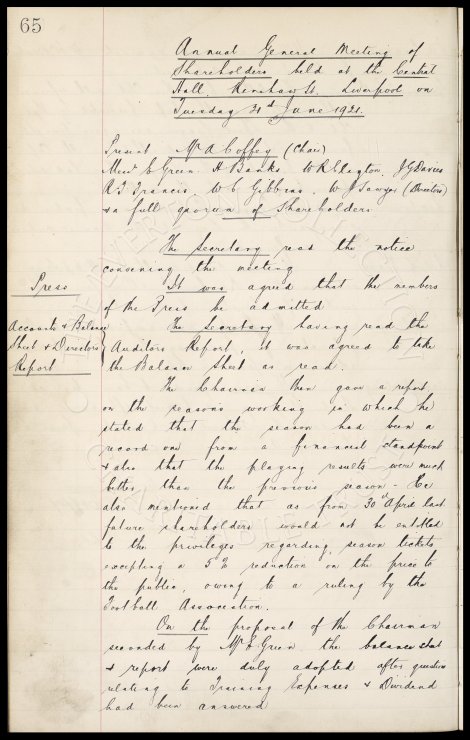 65
Annual General Meeting of
Shareholders held at the Central
Hall, Renshaw St. Liverpool on
Tuesday 21st June 1921.
Present Mr A Coffey (Chair)
Messrs E Green H Banks W R Clayton, J G Davies
A T Francis, W C Gibbins, W J Sawyer (Directors)
& a full quorum of Shareholders
The Secretary read the notice
convening the meeting
Press
It was agreed that the members
of the Press be admitted
Accounts & Balance
Sheet & Directors
Report
The Secretary having read the
Auditors Report, it was agreed to take
the Balance Sheet as read.
The Chairman then gave a report
on the seasons working in which he
stated that the season had been a
record one from a financial standpoint
& also that the playing results were much
better than the previous season - He
also mentioned that as from 30th April last
future shareholders would not be entitled
to the privileges regarding season tickets
excepting a 5% reduction on the price to
the public, owing to a ruling by the
Football Association.
On the proposal of the Chairman
seconded by Mr E Green the balance sheet
& report were duly adopted after questions
relating to Training Expenses & Dividend
had been answered